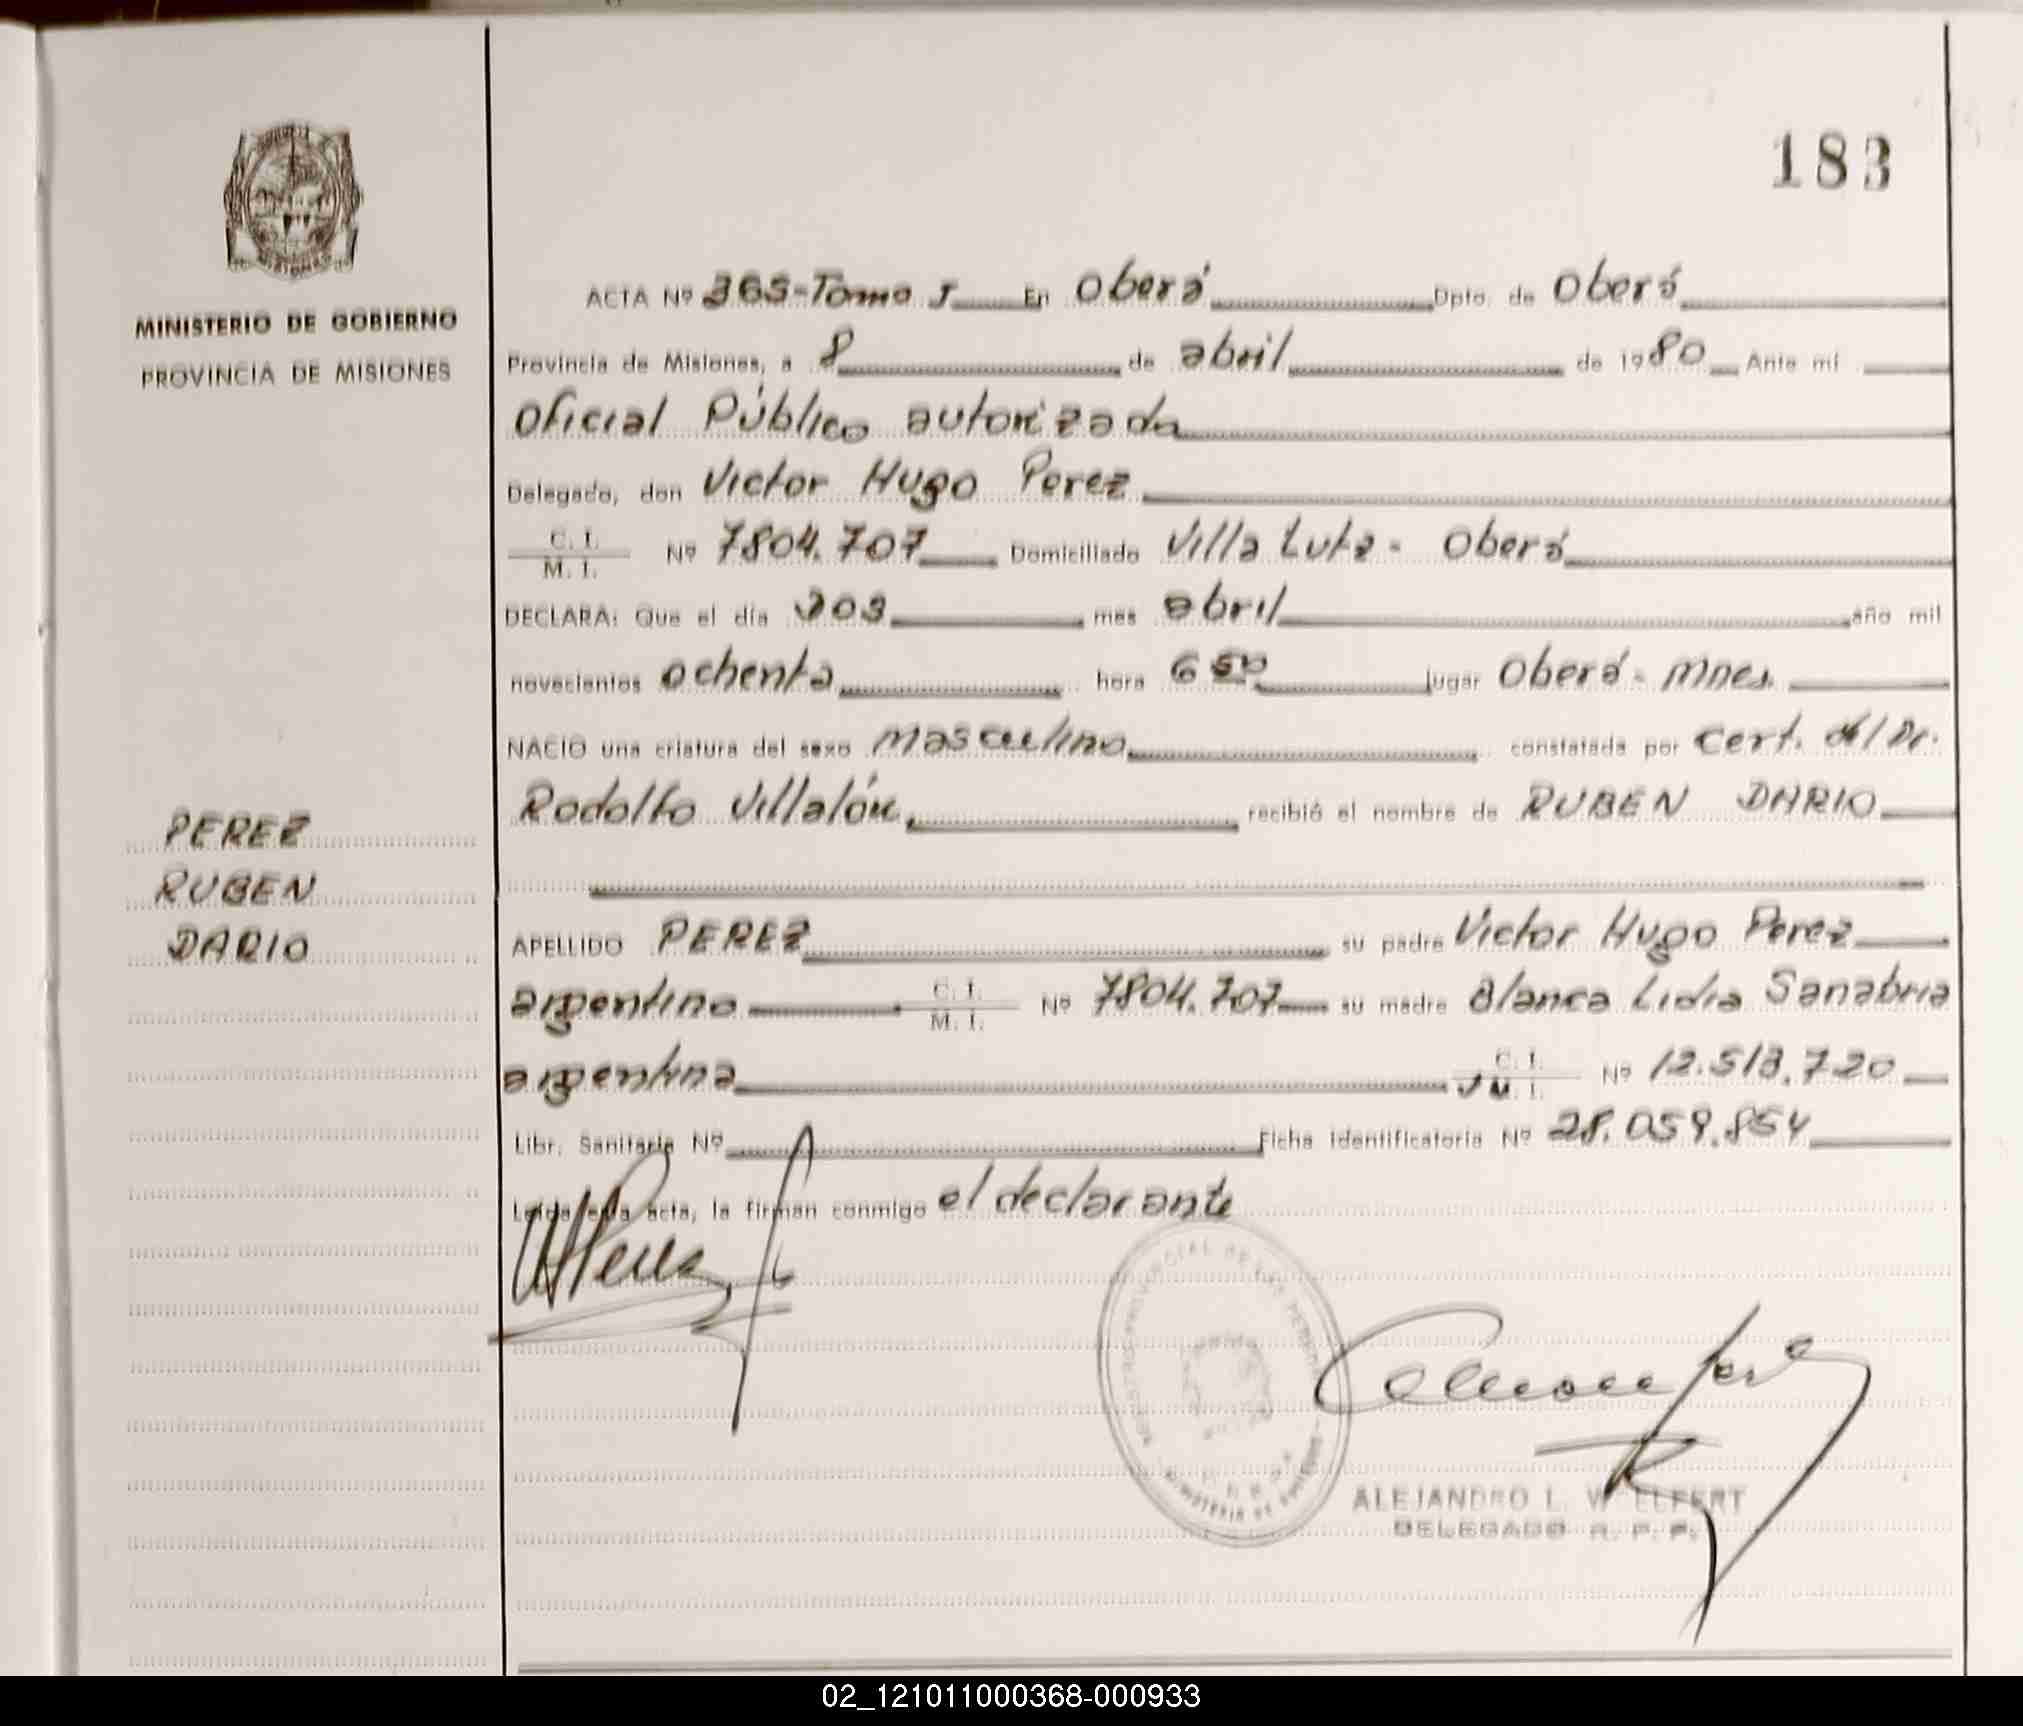 183
MINISTERIO DE GOBIERNO
PROVINCIA DE MISIONES
ACTA Nº 365-Tomo I En Oberá Dpto. de Oberá
Provincia de Misiones, a 8 de abril de 1980 Ante mí
Oficial Público autorizada
Delegado, don Victor Hugo Perez
C. I.
M. I. Nº 7804.707 Domiciliado Villa Lutz - Oberá
DECLARA: Que el día dos mes abril año mil
novecientos ochenta hora 6 50 lugar Oberá - Mnes.
NACIO una criatura del sexo masculino constatada por Cert. del Dr.
Rodolfo Villalón, recibió el nombre de RUBEN DARIO
PEREZ
RUBEN
DARIO
APELLIDO PEREZ su padre Victor Hugo Perez
argentino C. I.
M. I. Nº 7804.707 su madre Blanca Lidia Sanabria
argentina C. I.
M. I. Nº 12.513.720
Libr. Sanitaria Nº Ficha identificatoria Nº 28.059.854
Leída esta acta, la firman conmigo el declarante
ALEJANDRO L. W. ELFERT
DELEGADO R. P. P.
02_121011000368-000933